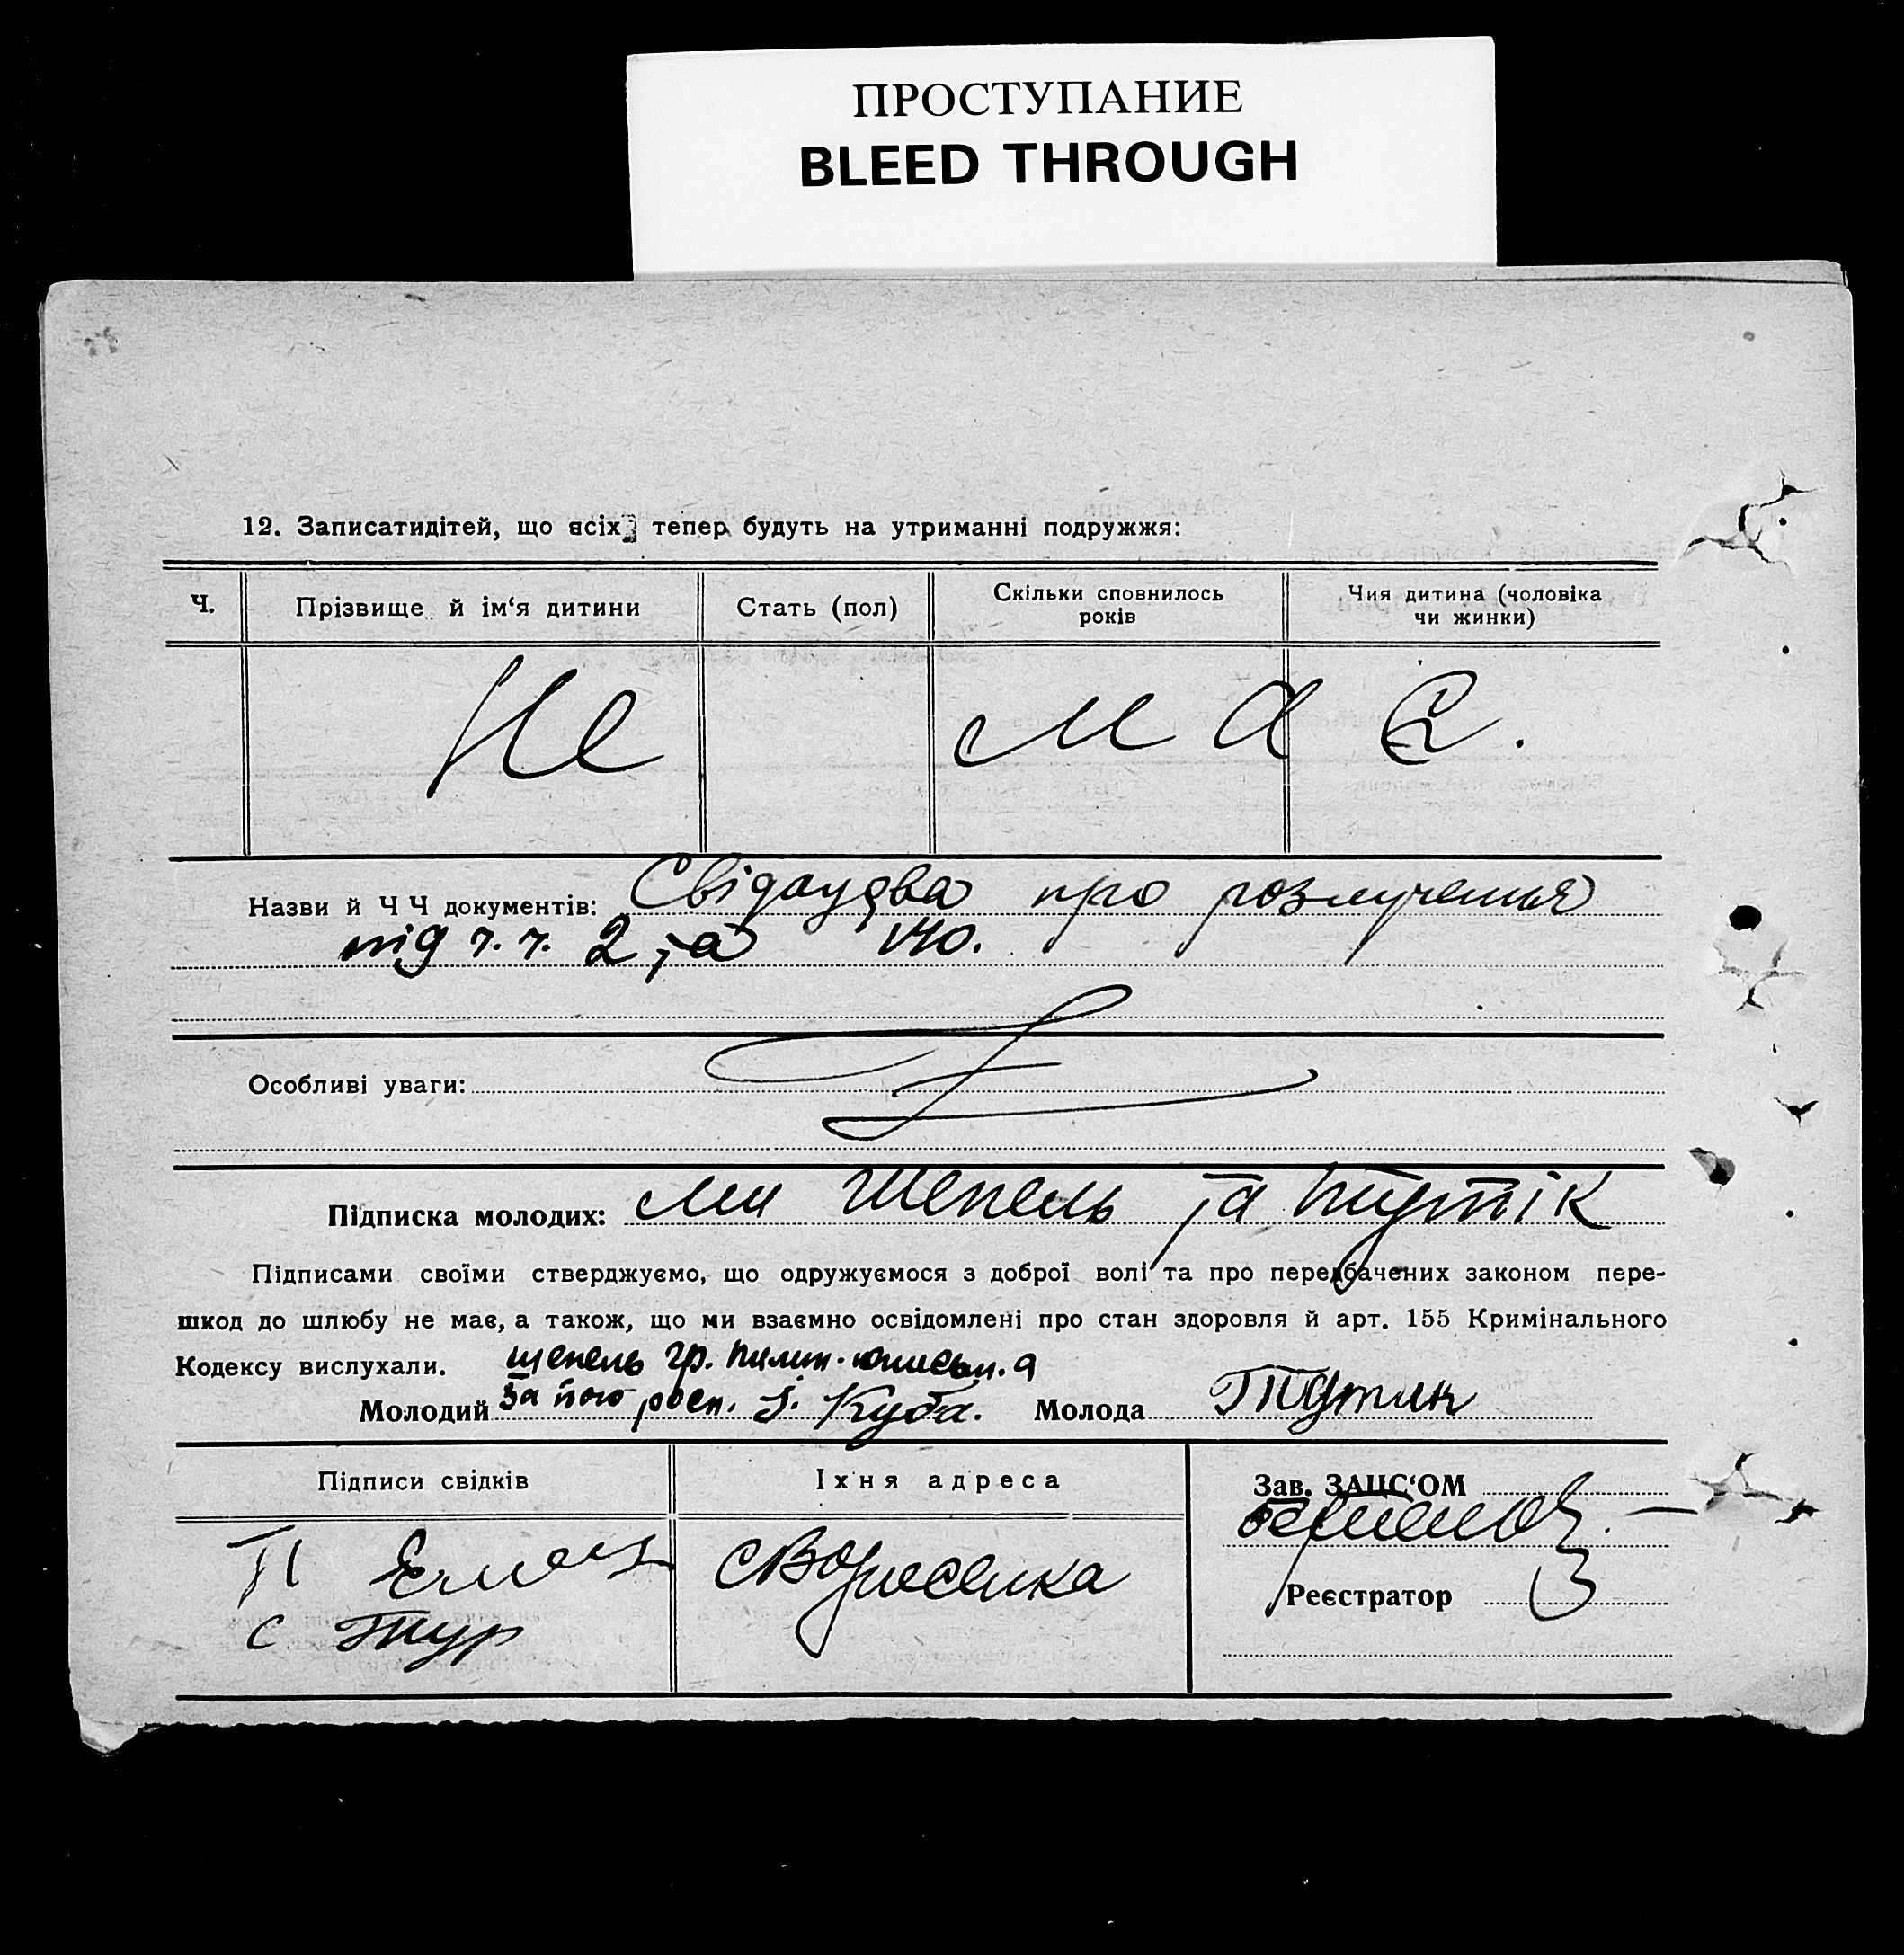 ПРОСТУПАНИЕ
BLEED THROUGH
12. Записатидітей, що всіх тепер будуть на утриманні подружжя:
Ч.
Прізвище й ім‘я дитини
Стать (пол)
Скільки сповнилось
років
Чия дитина (чоловіка
чи жинки)
Не має.
Назви й Ч Ч документів: Свідоцтва про розлучення
під ч. ч. 2 та 140.
Особливі уваги:
Підписка молодих: Ми Шепель та
Підписами своїми стверджуємо, що одружуємося з доброї волі та про передбачених законом пере-
шкод до шлюбу не має, а також, що ми взаємно освідомлені про стан здоровля й арт. 155 Кримінального
Кодексу вислухали. Шепель гр.
Молодий За його росп. Куба. Молода
Підписи свідків
Їхня адреса
Зав. ЗАЦС‘ОМ
П
с Вознесенка
Реєстратор
с